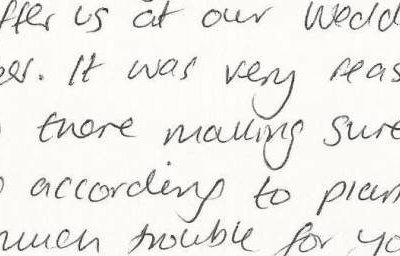 ffer us at our Wedd
es. It was very reas
there making sure
according to plan
much trouble for yo